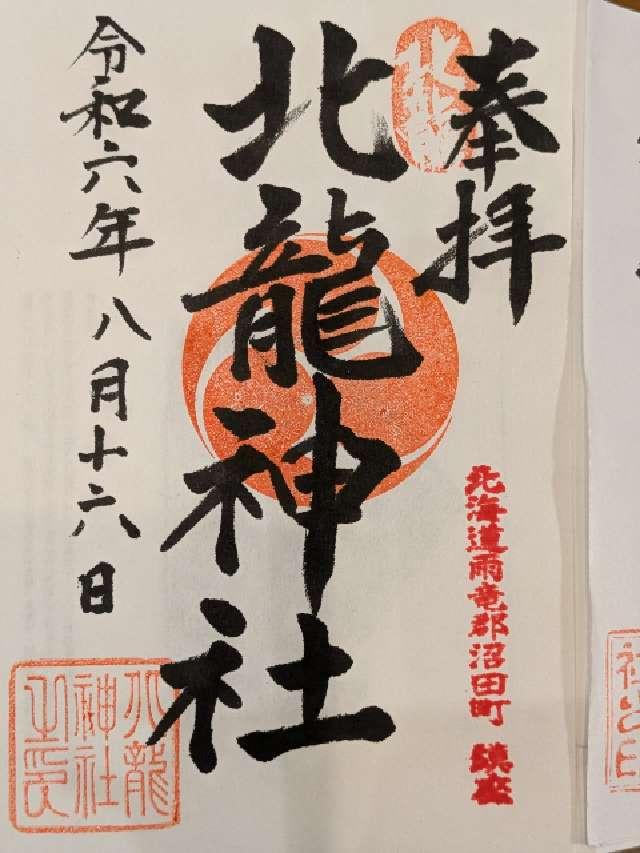 奉拝
北海道雨竜郡沼田町 鎮座
北龍
北龍神社
令和六年八月十六日
北龍
神社
之印
社
之
印